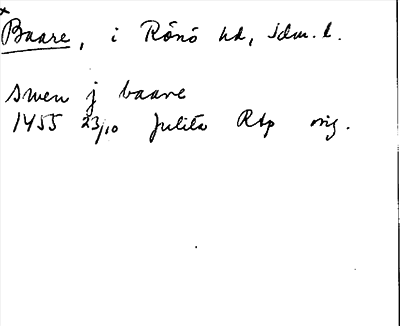 x
Baare, i Rönö hd, Sdm. l.
swen j baare
1455 23/10 Julita Rtp orig.